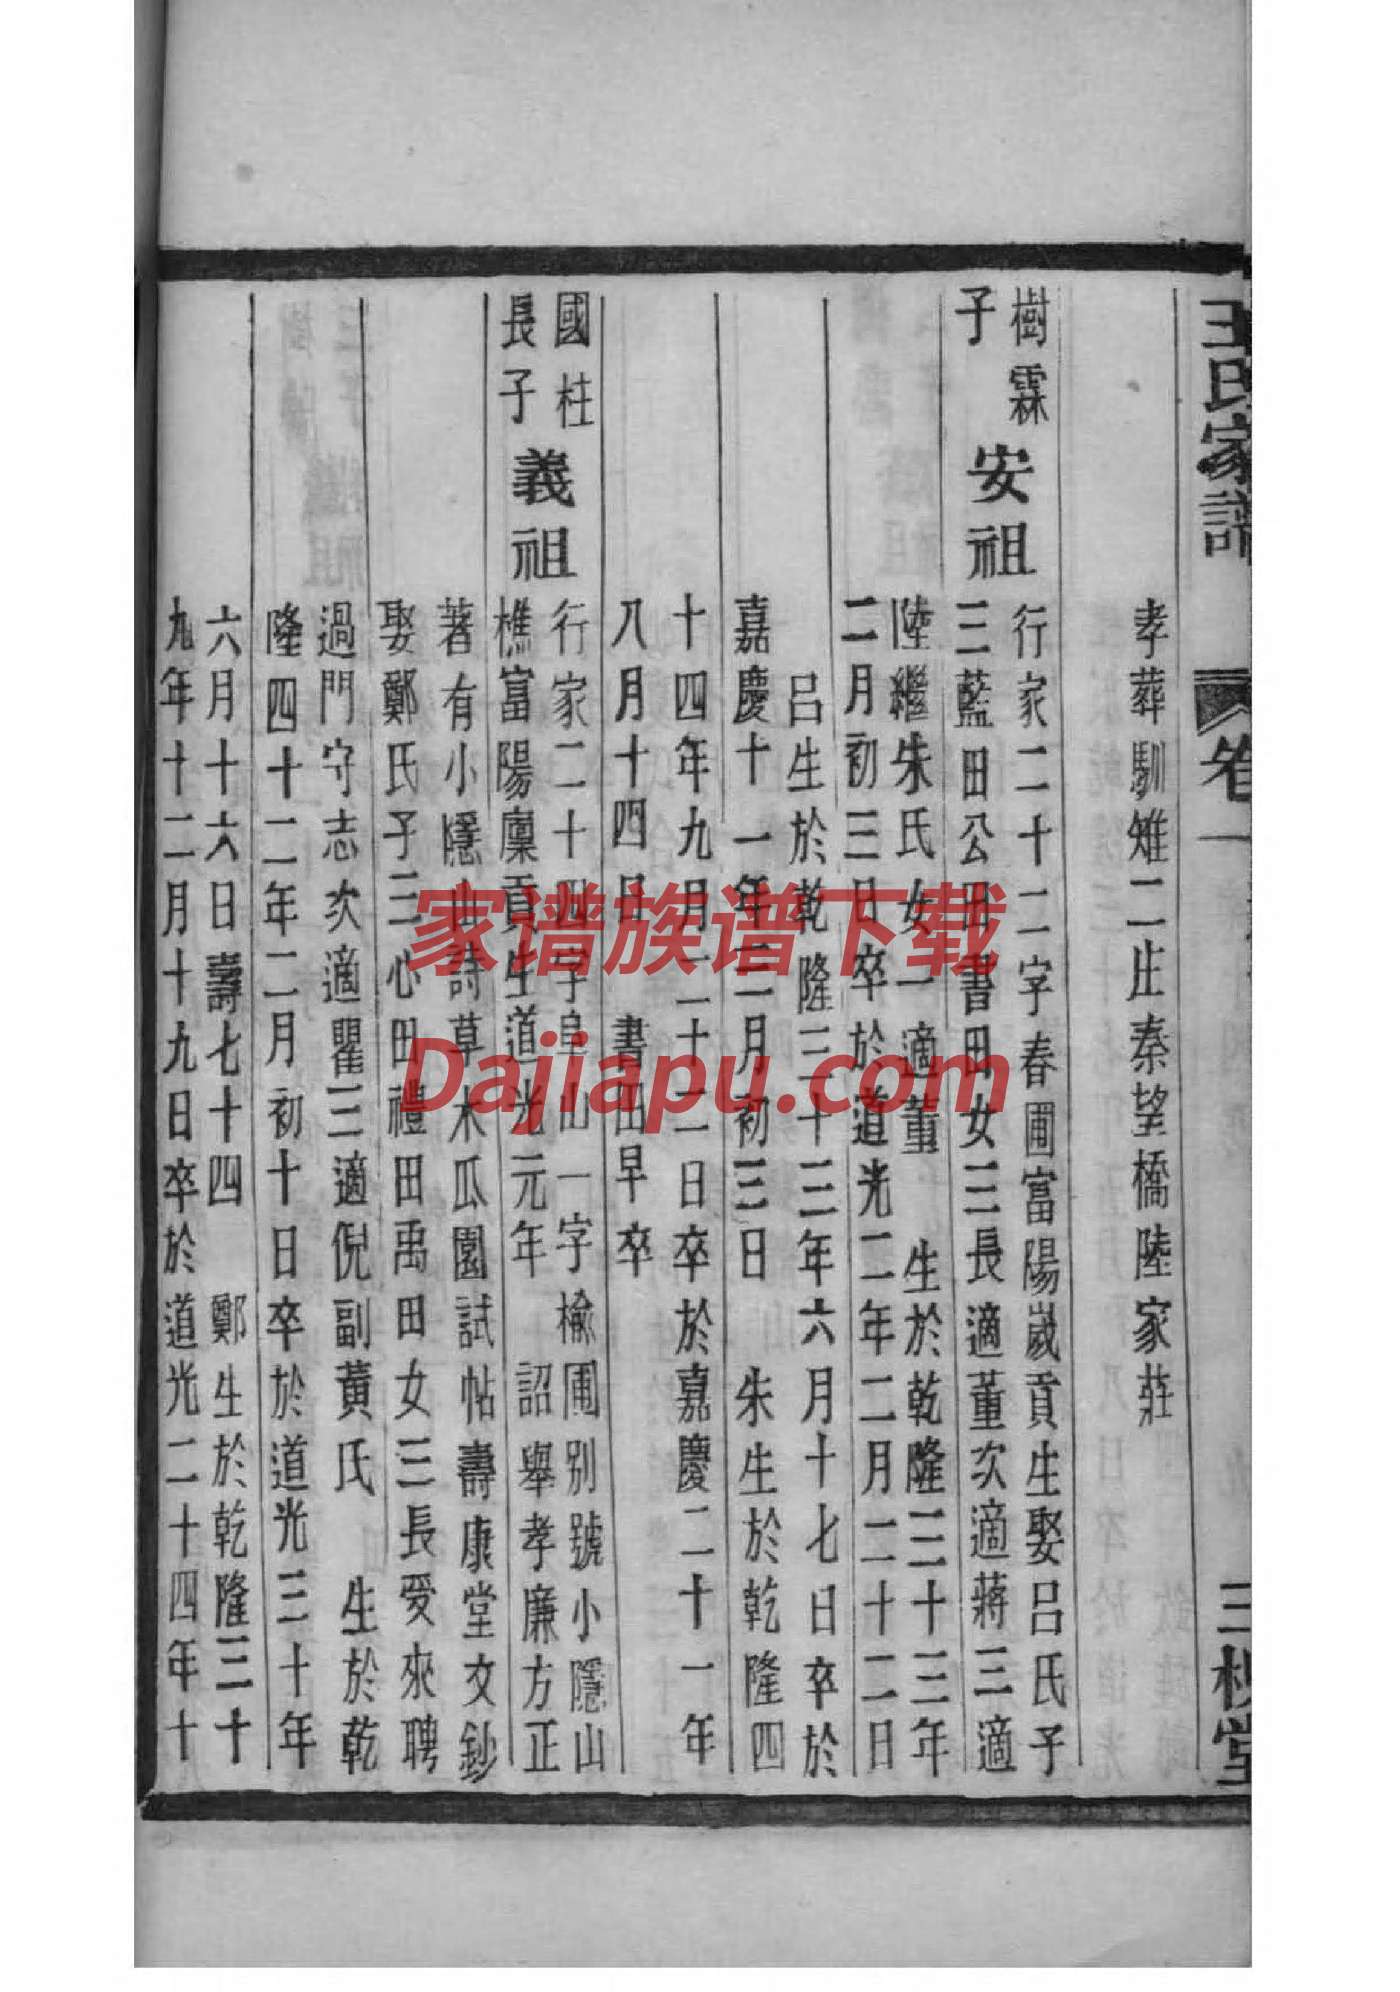 王氏家譜
卷一
三槐堂
孝葬馴雉二庄秦望橋陸家莊
樹霖
子
安祖
行家二十二字春圃富陽歲貢生娶呂氏子
三藍田公田書田女三長適董次適蔣三適
陸繼朱氏女一適董　生於乾隆三十三年
二月初三日卒於道光二年二月二十二日
呂生於乾隆三十三年六月十七日卒於
嘉慶十一年三月初三日　朱生於乾隆四
十四年九月二十二日卒於嘉慶二十一年
八月十四日　書田早卒
國柱
長子
義祖
行家二十四字阜山一字榆圃別號小隱山
樵富陽廩貢生道光元年　詔舉孝廉方正
著有小隱山詩草木瓜園試帖壽康堂文鈔
娶鄭氏子三心田禮田禹田女三長受來聘
過門守志次適瞿三適倪副黃氏　生於乾
隆四十二年二月初十日卒於道光三十年
六月十六日壽七十四　鄭生於乾隆三十
九年十二月十九日卒於道光二十四年十
家谱族谱下载
Dajiapu.com